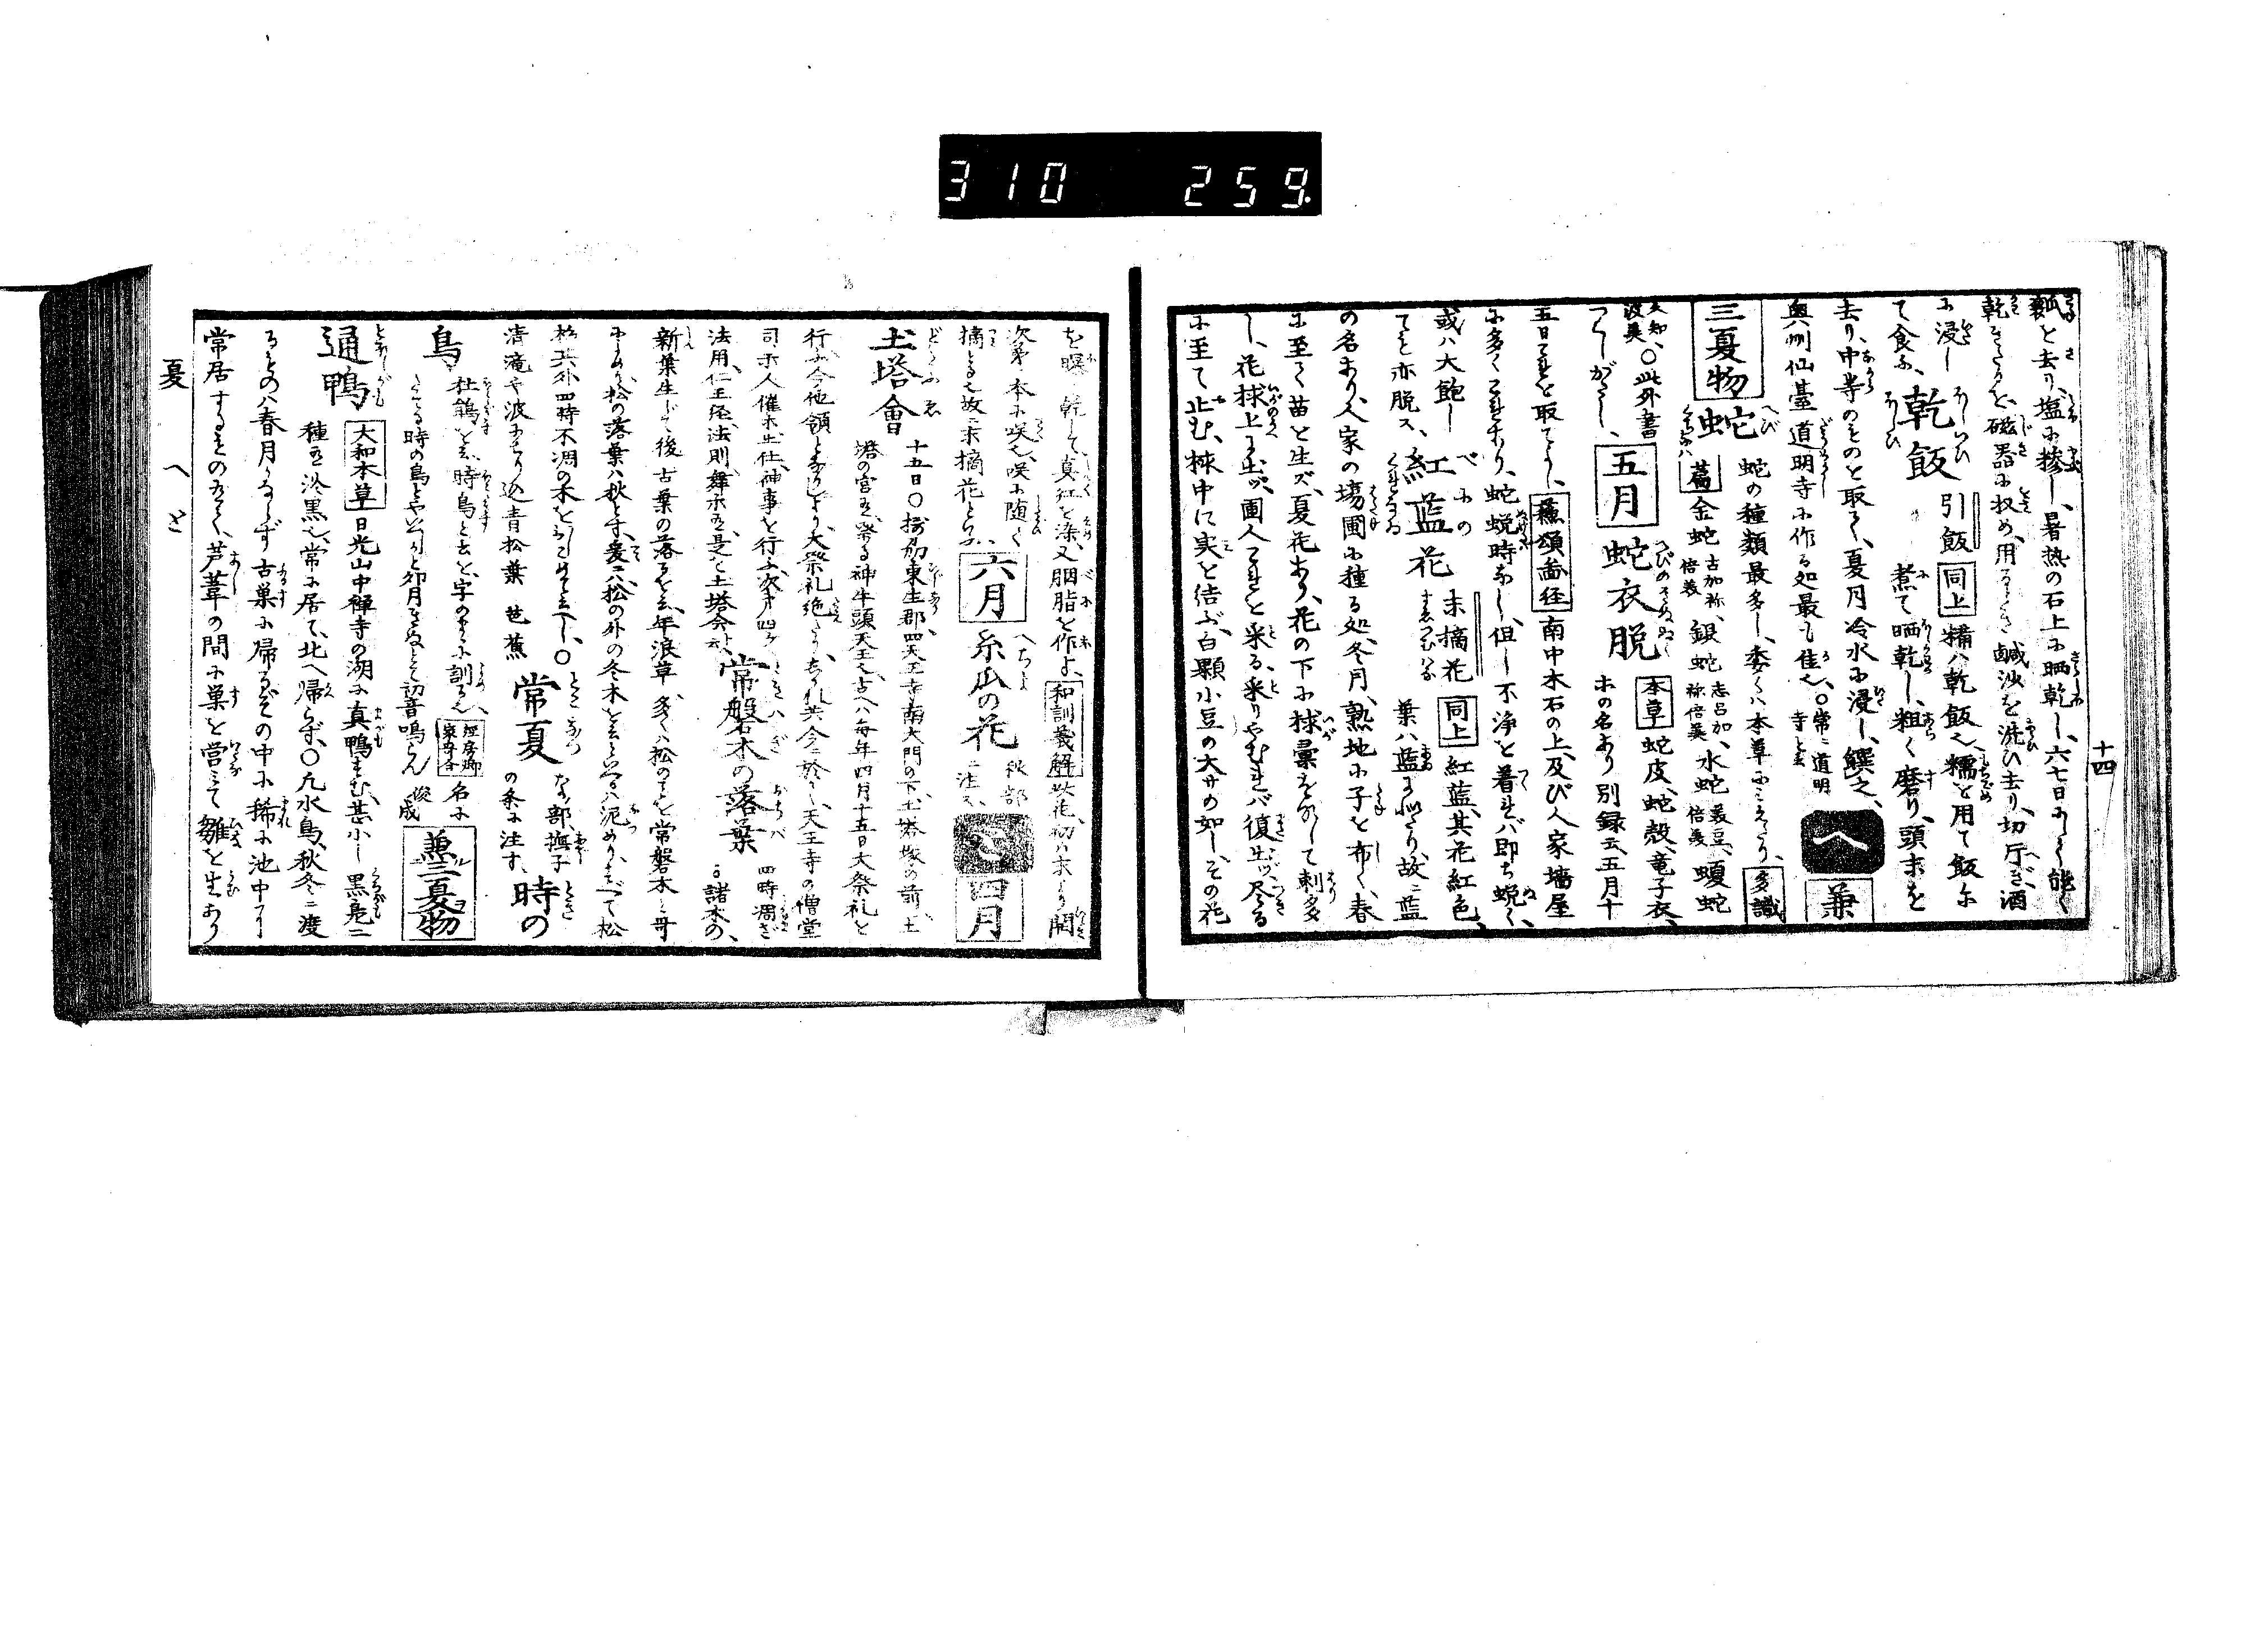 310 259.
十四
瓤を去り、塩に摻し、暑熱の石上に晒乾し、六七日にして能く
乾きたるを、磁器に収め、用るとき鹹沙を洗ひ去り、切斤ぎ、酒
に浸し
て食ふ、乾飯 引飯 同上 糒ハ乾飯也、糯を用て飯に
煮て晒乾し、粗く磨り、頭末を
去り、中等のものを取て、夏月冷水に浸し、饌之、
奥州仙臺道明寺に作る処最も佳也、○常ニ道明寺と云 ヘ 兼
三夏物 蛇 蛇の種類最多し、委くハ本草にみえたり、多識
篇 金蛇 古加祢倍美、銀蛇 志呂加祢倍美、水蛇 倍美、蝮蛇
波美、○此外書
つくしがたし、五月 蛇衣脱 本草 蛇皮、蛇殻、竜子衣、
ホの名あり 別録云、五月十
五日これを取てよし、蘓頌啚経 南中木石の上、及び人家墻屋
に多くこれあり、蛇蛻時なし、但し不浄を著れバ即ち蛻く、
或ハ大飽し
ても亦脱ス、紅藍花 末摘花 同上 紅藍、其花紅色、
葉ハ藍に似たり、故ニ藍
の名あり、人家の場圃に種る処、冬月、熟地に子を布く、春
に至て苗を生ズ、夏花あり、花の下に梂彙をなして刺多
し、花梂上に出ヅ、圃人これを采る、采りやむれバ復出ヅ、尽る
に至て止む、梂中に実を结ぶ、白顆小豆の大サの如し、その花
を曝し乾して、真紅を染、又胭脂を作よ、和訓義解 此花、初ハ末より開
次第ニ本に咲也、咲に随て
摘とる也、故ニ末摘花といふ、六月 糸瓜の花 秋部ニ注ス、と 四月
土塔會 十五日○摂州東生郡、四天王寺南大門の下、土塔塚の前、土
塔の宮に祭る神牛頭天王也、古へハ毎年四月十五日大祭礼を
行ふ、今他領となりしより、大祭礼絶たり、され共今ニ於て、天王寺の僧堂
司ホ人催ホ出仕、神事を行ふ
法用、仁王経、法則舞ホ有、是を土塔会云、常磐木の落葉 四時凋ざる諸木の、
新葉生じて、後古葉の落るを云、年浪草 多くハ松のことを常磐木と哥
にあり、松の落葉ハ秋とす、爰ニハ松の外の冬木を云といへるハ泥めり、すべて松
杉其外四時不凋の木をおしこめて云べし、○
清滝や波にちり込青松葉 芭蕉 常夏 なの部、撫子
の条に注す、時の
鳥 杜鵑を云、時鳥と云を、字のまゝに訓る也、 名に
たてる時の鳥とや 卯月きぬとて初音鳴らん 俊成 兼三夏物
通鴨 大和本草 日光山中禅寺の湖に真鴨すむ、甚小し、黒鳧ニ
種有、淡黒也、常に居て、北へ帰らず、○凡水鳥、秋冬ニ渡
るものハ春月かならず古巣に帰る、その中に稀に池中に
常居するものありて、芦葦の間に巣を営みて雛を生あり
夏 へ と